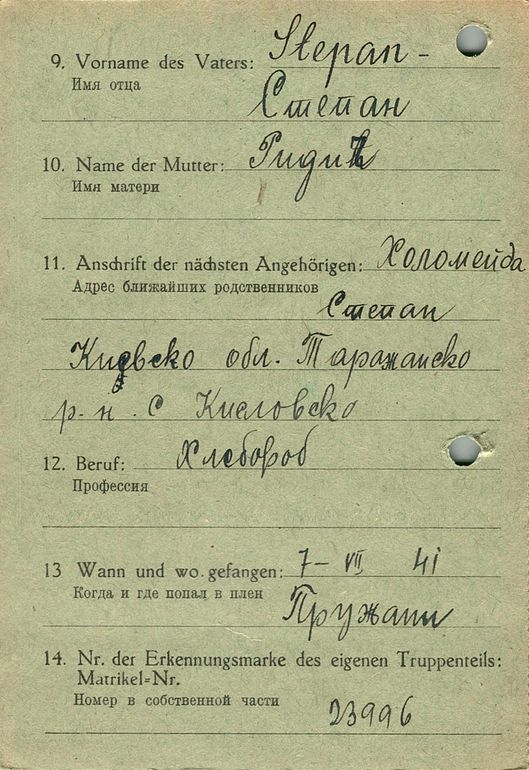 9. Vorname des Vaters: Stepan -
Имя отца
Степан
10. Name der Mutter:
Имя матери
11. Anschrift der nächsten Angehörigen: Холомейда
Адрес ближайших родственников
Степан
Киевско обл. Таражанско
р-н. с Кисловско
12. Beruf: Хлебороб
Профессия
13 Wann und wo gefangen: 7- VII 41
Когда и где попал в плен
Пружаны
14. Nr. der Erkennungsmarke des eigenen Truppenteils:
Matrikel=Nr.
Номер в собственной части
23996